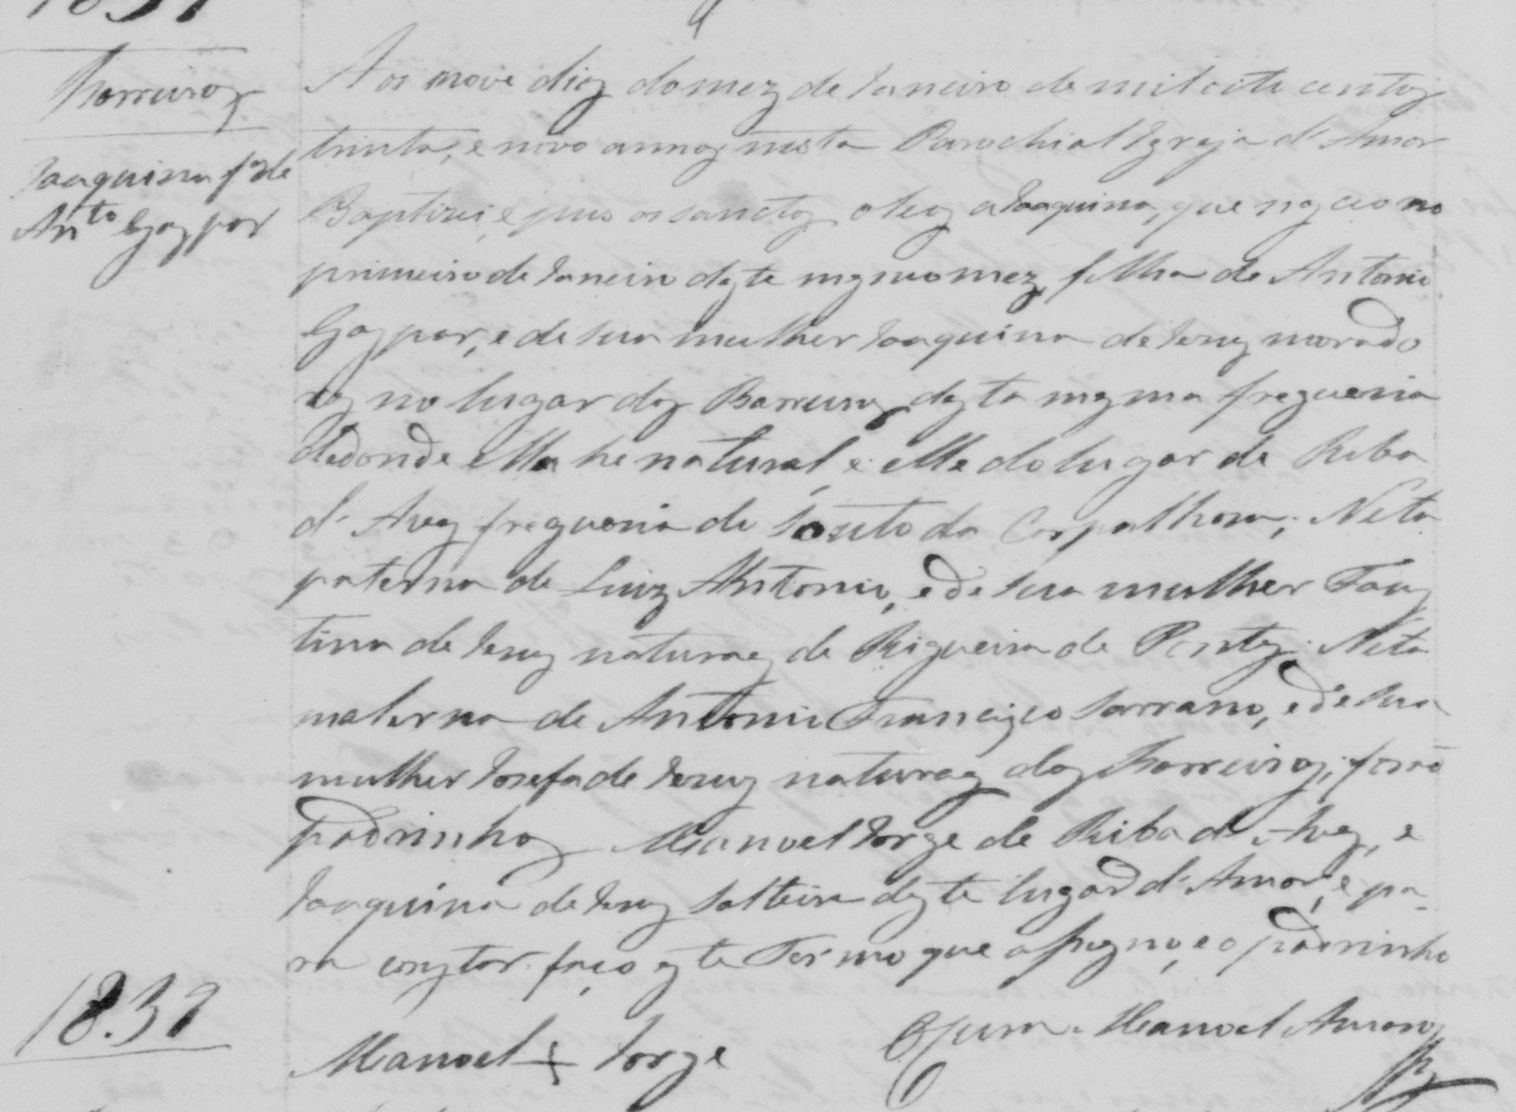 1839
Barreiros
Joaquina fª de
Anto Gaspar
Aos nove dias do mez de Janeiro de mil oito centos
trinta, e nove annos nesta Parochial Igreja d'Amor
Baptizei, e puz os sanctos oleos a Joaquina, que nasceo no
primeiro de Janeiro deste mesmo mez, filha de Antonio
Gaspar, e de sua mulher Joaquina de Jesus morado
res no lugar dos Barreiros desta mesma freguesia
dedonde ella he natural, e elle do lugar de Riba
d'Aves freguesia de Souto da Carpalhosa; Neta
paterna de Luiz Antonio, e de sua mulher Faus
tina de Jesus naturaes de Rigueira de Pontes: Neta
materna de Antonio Francisco Sarrano, e de sua
mulher Josefa de Jesus naturaes dos Barreiros; forão
padrinhos Manoel Jorge de Riba d'Aves, e
Joaquina de Jesus solteira deste lugar d'Amor, e pa-
ra constar faço este Termo que assigno, e o padrinho
Manoel + Jorge O Cura Manoel
1839